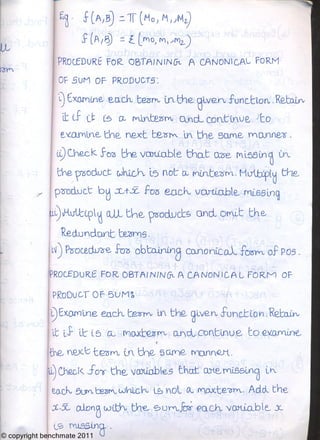 Eg. f(A,B) = π (M0, M1, M2)
f(A,B) = Σ (m0, m1, m2)
PROCEDURE FOR OBTAINING A CANONICAL FORM
OF SUM OF PRODUCTS:
i) Examine each term in the given function. Retain
it if it is a minterm and continue to
examine the next term in the same manner.
ii) Check for the variable that are missing in
the product which is not a minterm. Multiply the
product by x+x̄ for each variable missing
iii) Multiply all the products and omit the
Redundant terms.
iv) Procedure for obtaining canonical form of POS.
PROCEDURE FOR OBTAINING A CANONICAL FORM OF
PRODUCT OF SUMS
i) Examine each term in the given function. Retain
it if it is a maxterm and continue to examine
the next term in the same manner.
ii) Check for the variables that are missing in
each sum term which is not a maxterm. Add the
x.x̄ along with the sum for each variable x
is missing.
© copyright benchmate 2011